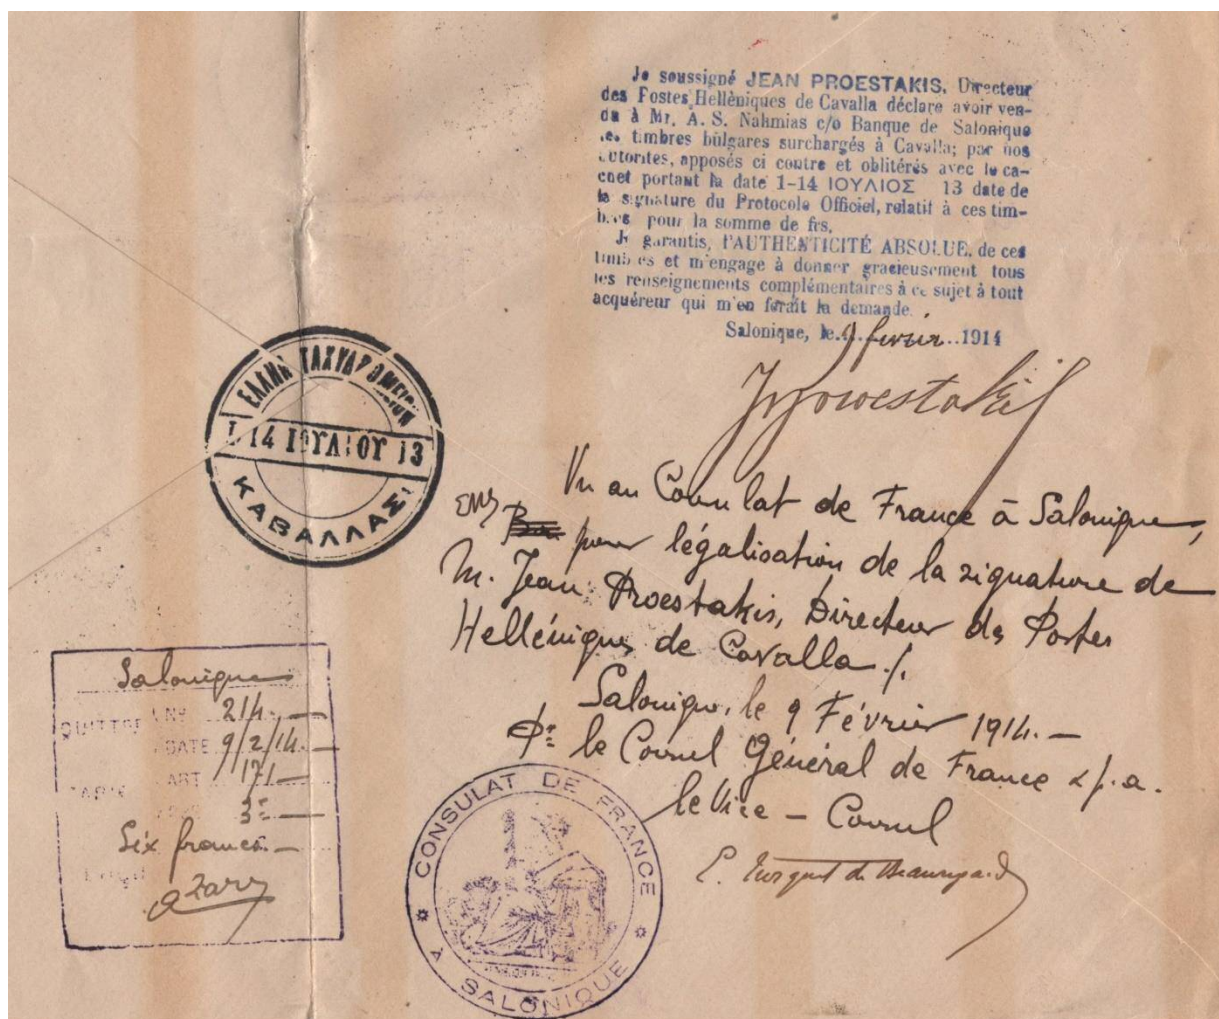 Je soussigné JEAN PROESTAKIS, Directeur
des Postes Hellèniques de Cavalla déclare avoir ven-
du à Mr. A. S. Nahmias c/o Banque de Salonique
les timbres bùlgares surchargés à Cavalla; par nos
autorites, apposés ci contre et oblitérés avec le ca-
chet portant la date 1-14 ΙΟΥΛΙΟΣ 13 date de
la signature du Protocole Officiel, relatif à ces tim-
bres pour la somme de frs.
Je garantis, l'AUTHENTICITÉ ABSOLUE, de ces
timbres et m'engage à donner gracieusement tous
les renseignements complémentaires à ce sujet à tout
acquéreur qui m'en ferait la demande.
Salonique, le 9 fevrier 1914
JProestakis
ΕΛΛΗΝ ΤΑΧΥΔΡΟΜΕΙΟΝ
1-14 ΙΟΥΛΙΟΥ 13
ΚΑΒΑΛΛΑΣ
Vu au Consulat de France à Salonique,
pour légalisation de la signature de
M. Jean Proestakis, Directeur des Postes
Helléniques de Cavalla ./.
Salonique, le 9 Février 1914. —
Pr. le Consul Général de France
le Vice - Consul
E. Turquet de Beauregard
Salonique
QUITTCE No 214. —
DATE 9/2/14. —
TARIF ART 171 —
3
Six francs —
CONSULAT DE FRANCE
À SALONIQUE